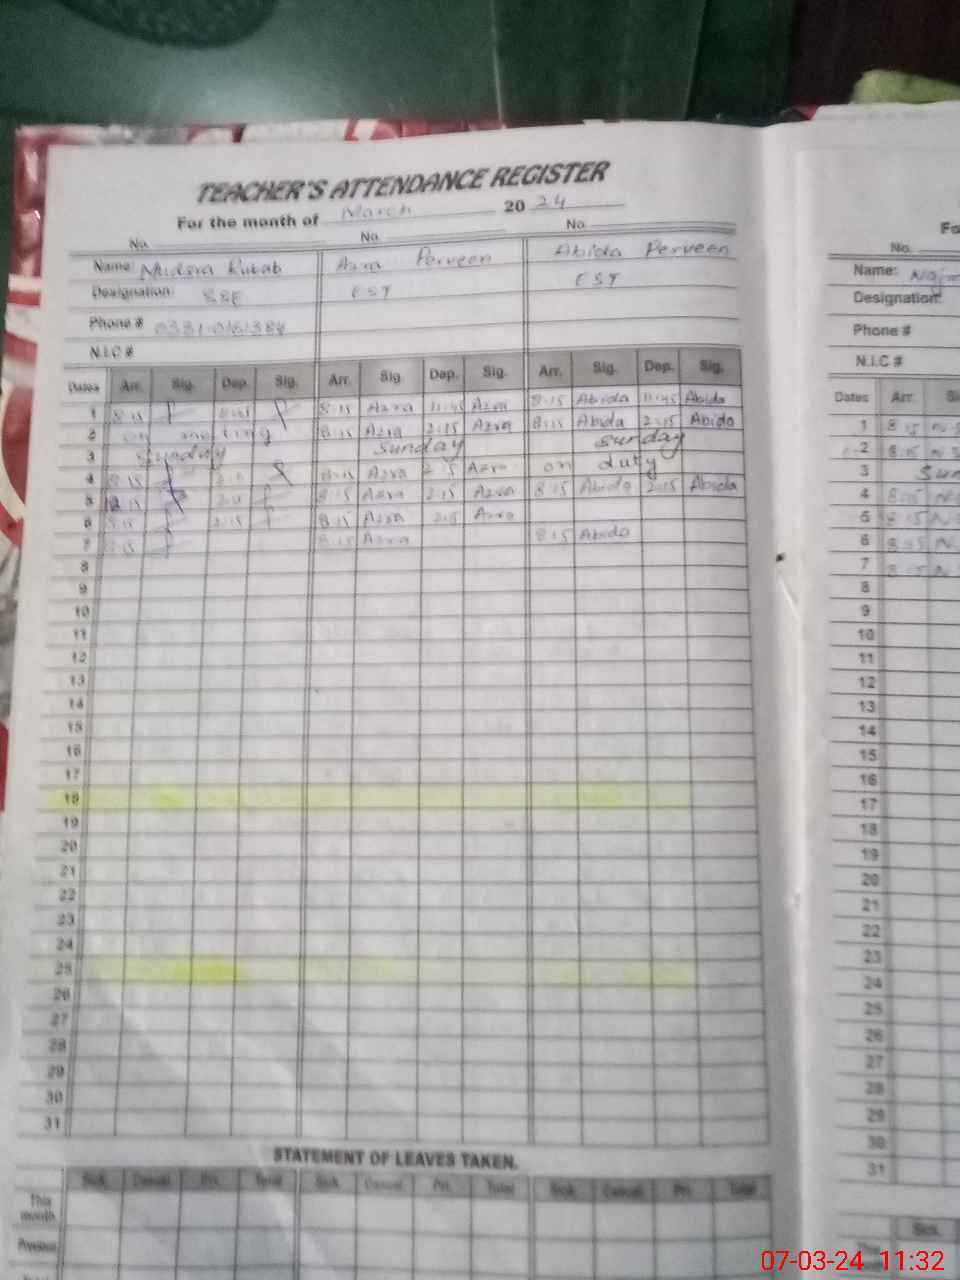 TEACHER'S ATTENDANCE REGISTER
For the month of March 2024
No. No. No.
Name: Azra Perveen Abida Perveen
Designation: SSE EST EST
Phone #
N.I.C #
Dates Arr. Sig. Dep. Sig. Arr. Sig. Dep. Sig. Arr. Sig. Dep. Sig.
1 8:15 11:45 8:15 Azra 11:45 Azra 8:15 Abida 11:45 Abida
2 on meeting 8:15 Azra 2:15 Azra 8:15 Abida 2:15 Abida
3 Sunday Sunday Sunday
4 8:15 8:15 Azra 2:15 Azra on duty
5 8:15 8:15 Azra 2:15 Azra 8:15 Abida 2:15 Abida
6 8:15 2:15 8:15 Azra 2:15 Azra
7 8:15 8:15 Azra 8:15 Abida
8
9
10
11
12
13
14
15
16
17
18
19
20
21
22
23
24
25
26
27
28
29
30
31
STATEMENT OF LEAVES TAKEN.
Sick Casual Pri. Total Sick Casual Pri. Total Sick Casual Pri. Total
This month
Previous
Total
Fo
No.
Name:
Designation:
Phone #
N.I.C #
Dates Arr. Si
1 8:15 N.S
2 8:15 N.S
3 Sun
4 8:15 N.
5 8:15 N.
6 8:15 N.
7 8:15 N.
8
9
10
11
12
13
14
15
16
17
18
19
20
21
22
23
24
25
26
27
28
29
30
31
Sick
07-03-24 11:32